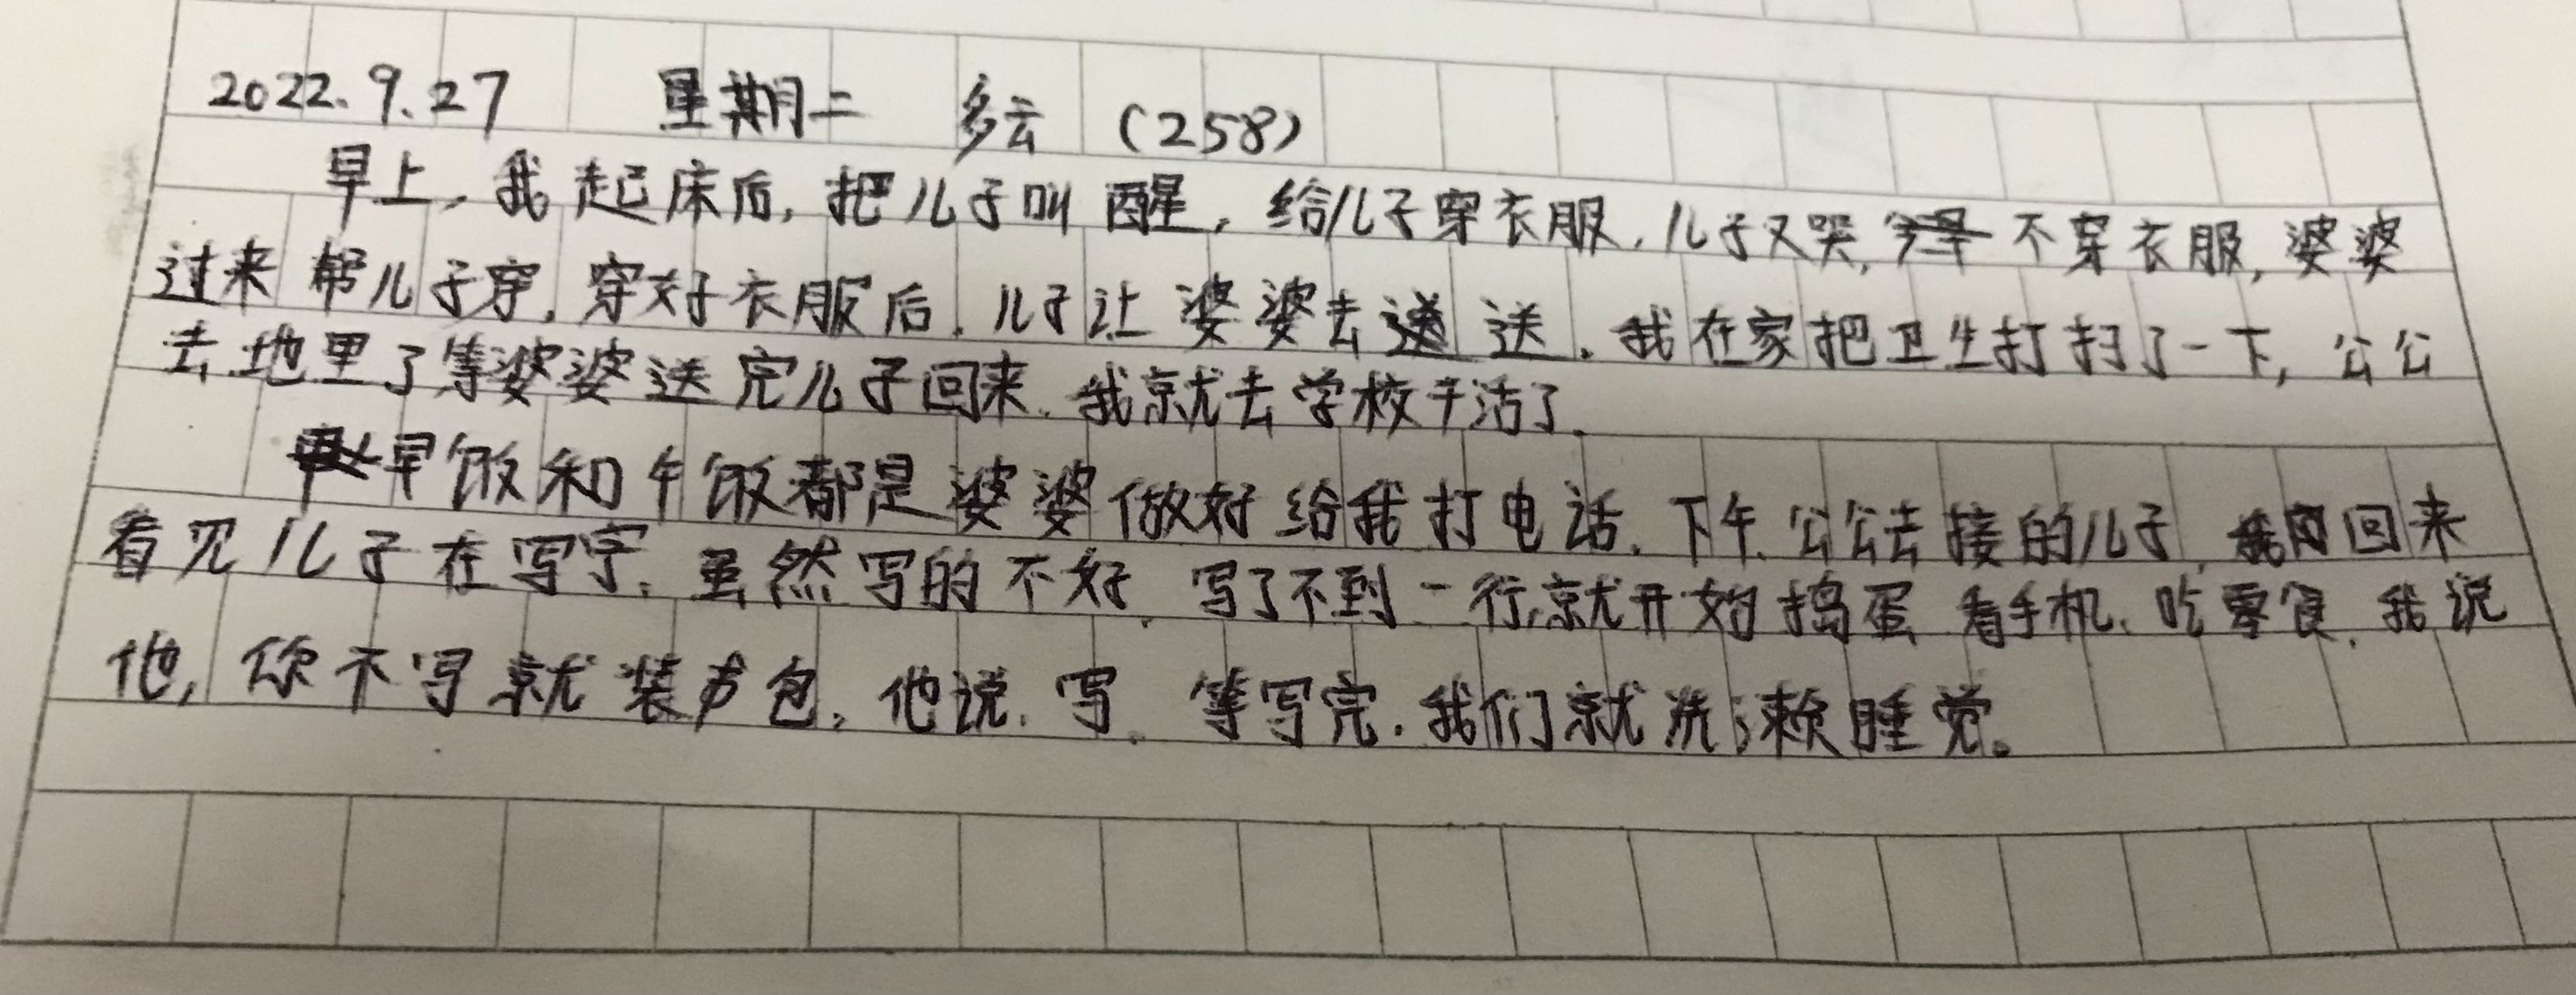 2022.9.27 星期二 多云 (258)
早上，我起床后，把儿子叫醒，给儿子穿衣服，儿子又哭，不穿衣服，婆婆
过来帮儿子穿，穿好衣服后，儿子让婆婆去送，我在家把卫生打扫了一下，公公
去地里了等婆婆送完儿子回来，我就去学校干活了。
早饭和午饭都是婆婆做好给我打电话，下午，公公去接的儿子，回来
看见儿子在写字，虽然写的不好，写了不到一行，就开始捣蛋 看手机、吃零食，我说
他，你不写就装书包，他说，写。等写完，我们就洗漱睡觉。